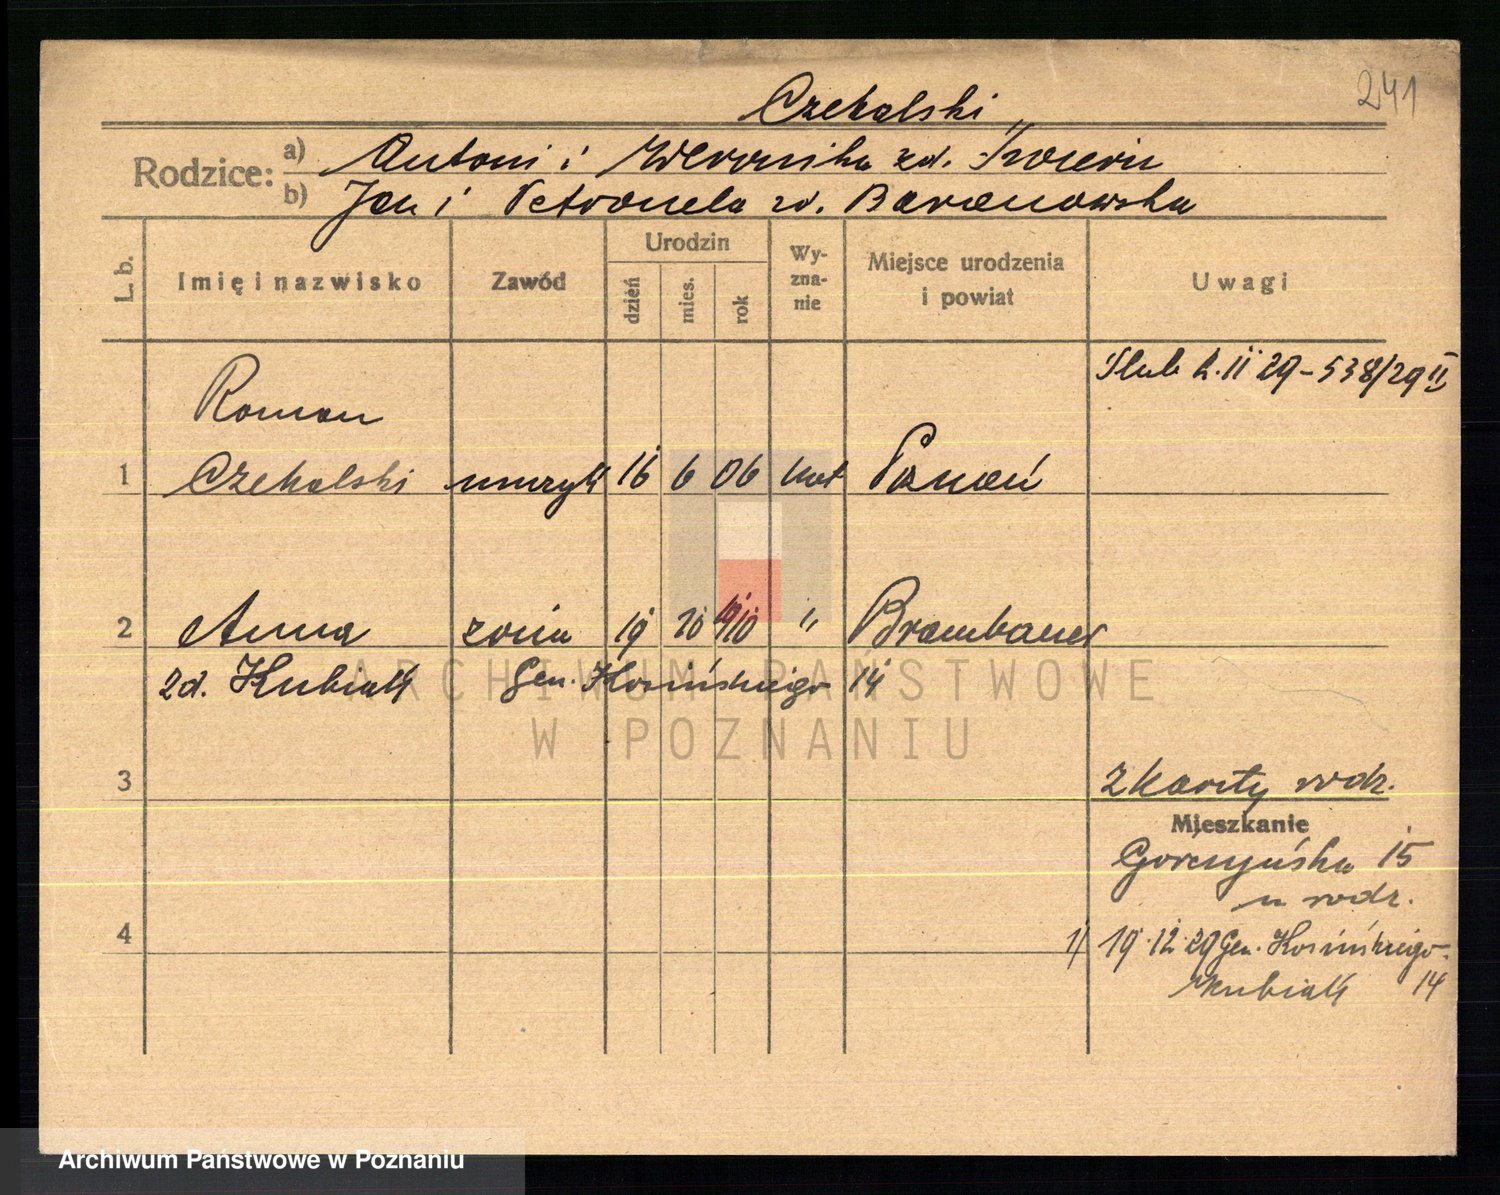 241
Czekalski
Rodzice: a) Antoni i Weronika zd.
b) Jan i Petronela zd. Baranowska
L. b. Imię i nazwisko Zawód Urodzin dzień mies. rok Wy-zna-nie Miejsce urodzenia i powiat Uwagi
Ślub 2. II 29 – 538/29 II
Roman
1 Czekalski muzyk 16 6 06 kat Poznań
2 Anna żona 19 10 1910 " Brambauer
zd. Kubiak Gen. Kosińskiego 14
3 z karty rodz.
Mieszkanie
Górczyńska 15
u rodz.
4 1/ 19. 12. 29 Gen. Kosińskiego
Kubiak 14
ARCHIWUM PAŃSTWOWE
W POZNANIU
Archiwum Państwowe w Poznaniu